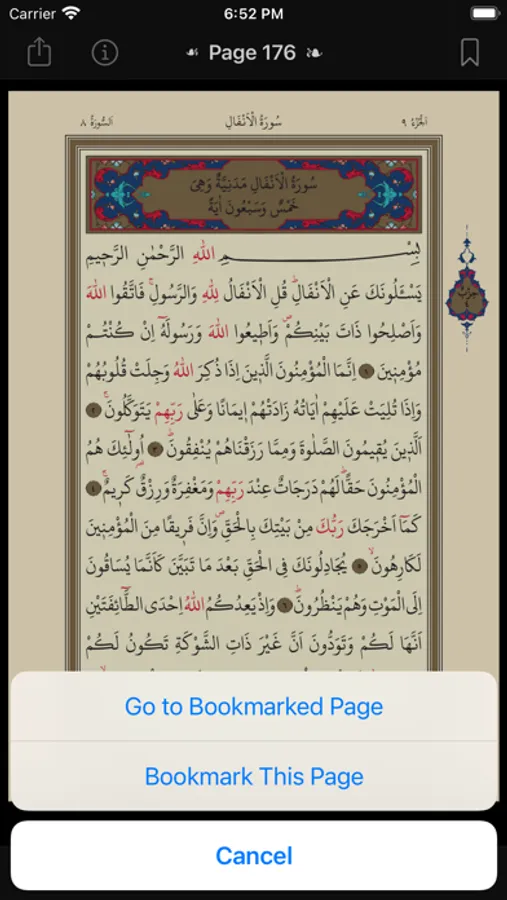 Carrier 6:52 PM
Page 176
اَلْجُزْءُ ٩ سُورَةُ الْاَنْفَالِ اَلسُّورَةُ ٨
سُورَةُ الْاَنْفَالِ مَدَنِيَّةٌ وَهِىَ
خَمْسٌ وَسَبْعُونَ اٰيَةً
بِسْمِ اللّٰهِ الرَّحْمٰنِ الرَّحٖيمِ
يَسْـَٔلُونَكَ عَنِ الْاَنْفَالِۜ قُلِ الْاَنْفَالُ لِلّٰهِ وَالرَّسُولِۚ فَاتَّقُوا اللّٰهَ
وَاَصْلِحُوا ذَاتَ بَيْنِكُمْۖ وَاَطٖيعُوا اللّٰهَ وَرَسُولَهُٓ اِنْ كُنْتُمْ
مُؤْمِنٖينَ ١ اِنَّمَا الْمُؤْمِنُونَ الَّذٖينَ اِذَا ذُكِرَ اللّٰهُ وَجِلَتْ قُلُوبُهُمْ
وَاِذَا تُلِيَتْ عَلَيْهِمْ اٰيَاتُهُ زَادَتْهُمْ اٖيمَانًا وَعَلٰى رَبِّهِمْ يَتَوَكَّلُونَۚ ٢
اَلَّذٖينَ يُقٖيمُونَ الصَّلٰوةَ وَمِمَّا رَزَقْنَاهُمْ يُنْفِقُونَۜ ٣ اُولٰٓئِكَ هُمُ
الْمُؤْمِنُونَ حَقًّاۜ لَهُمْ دَرَجَاتٌ عِنْدَ رَبِّهِمْ وَمَغْفِرَةٌ وَرِزْقٌ كَرٖيمٌۚ ٤
كَمَٓا اَخْرَجَكَ رَبُّكَ مِنْ بَيْتِكَ بِالْحَقِّۖ وَاِنَّ فَرٖيقًا مِنَ الْمُؤْمِنٖينَ
لَكَارِهُونَۙ ٥ يُجَادِلُونَكَ فِى الْحَقِّ بَعْدَ مَا تَبَيَّنَ كَاَنَّمَا يُسَاقُونَ
اِلَى الْمَوْتِ وَهُمْ يَنْظُرُونَۜ ٦ وَاِذْ يَعِدُكُمُ اللّٰهُ اِحْدَى الطَّٓائِفَتَيْنِ
اَنَّهَا لَكُمْ وَتَوَدُّونَ اَنَّ غَيْرَ ذَاتِ الشَّوْكَةِ تَكُونُ لَكُمْ
Go to Bookmarked Page
Bookmark This Page
Cancel